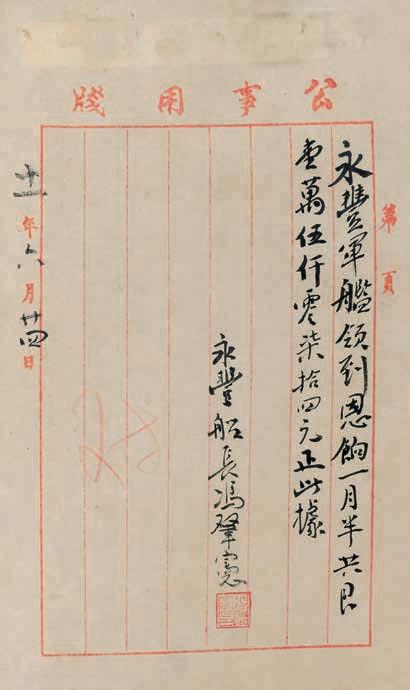 公事用牋
第 頁
永豐軍艦領到恩餉一月半共艮
壹萬伍仟零柒拾四元正此據
永豐船長馮肇憲
十一年六月廿四日